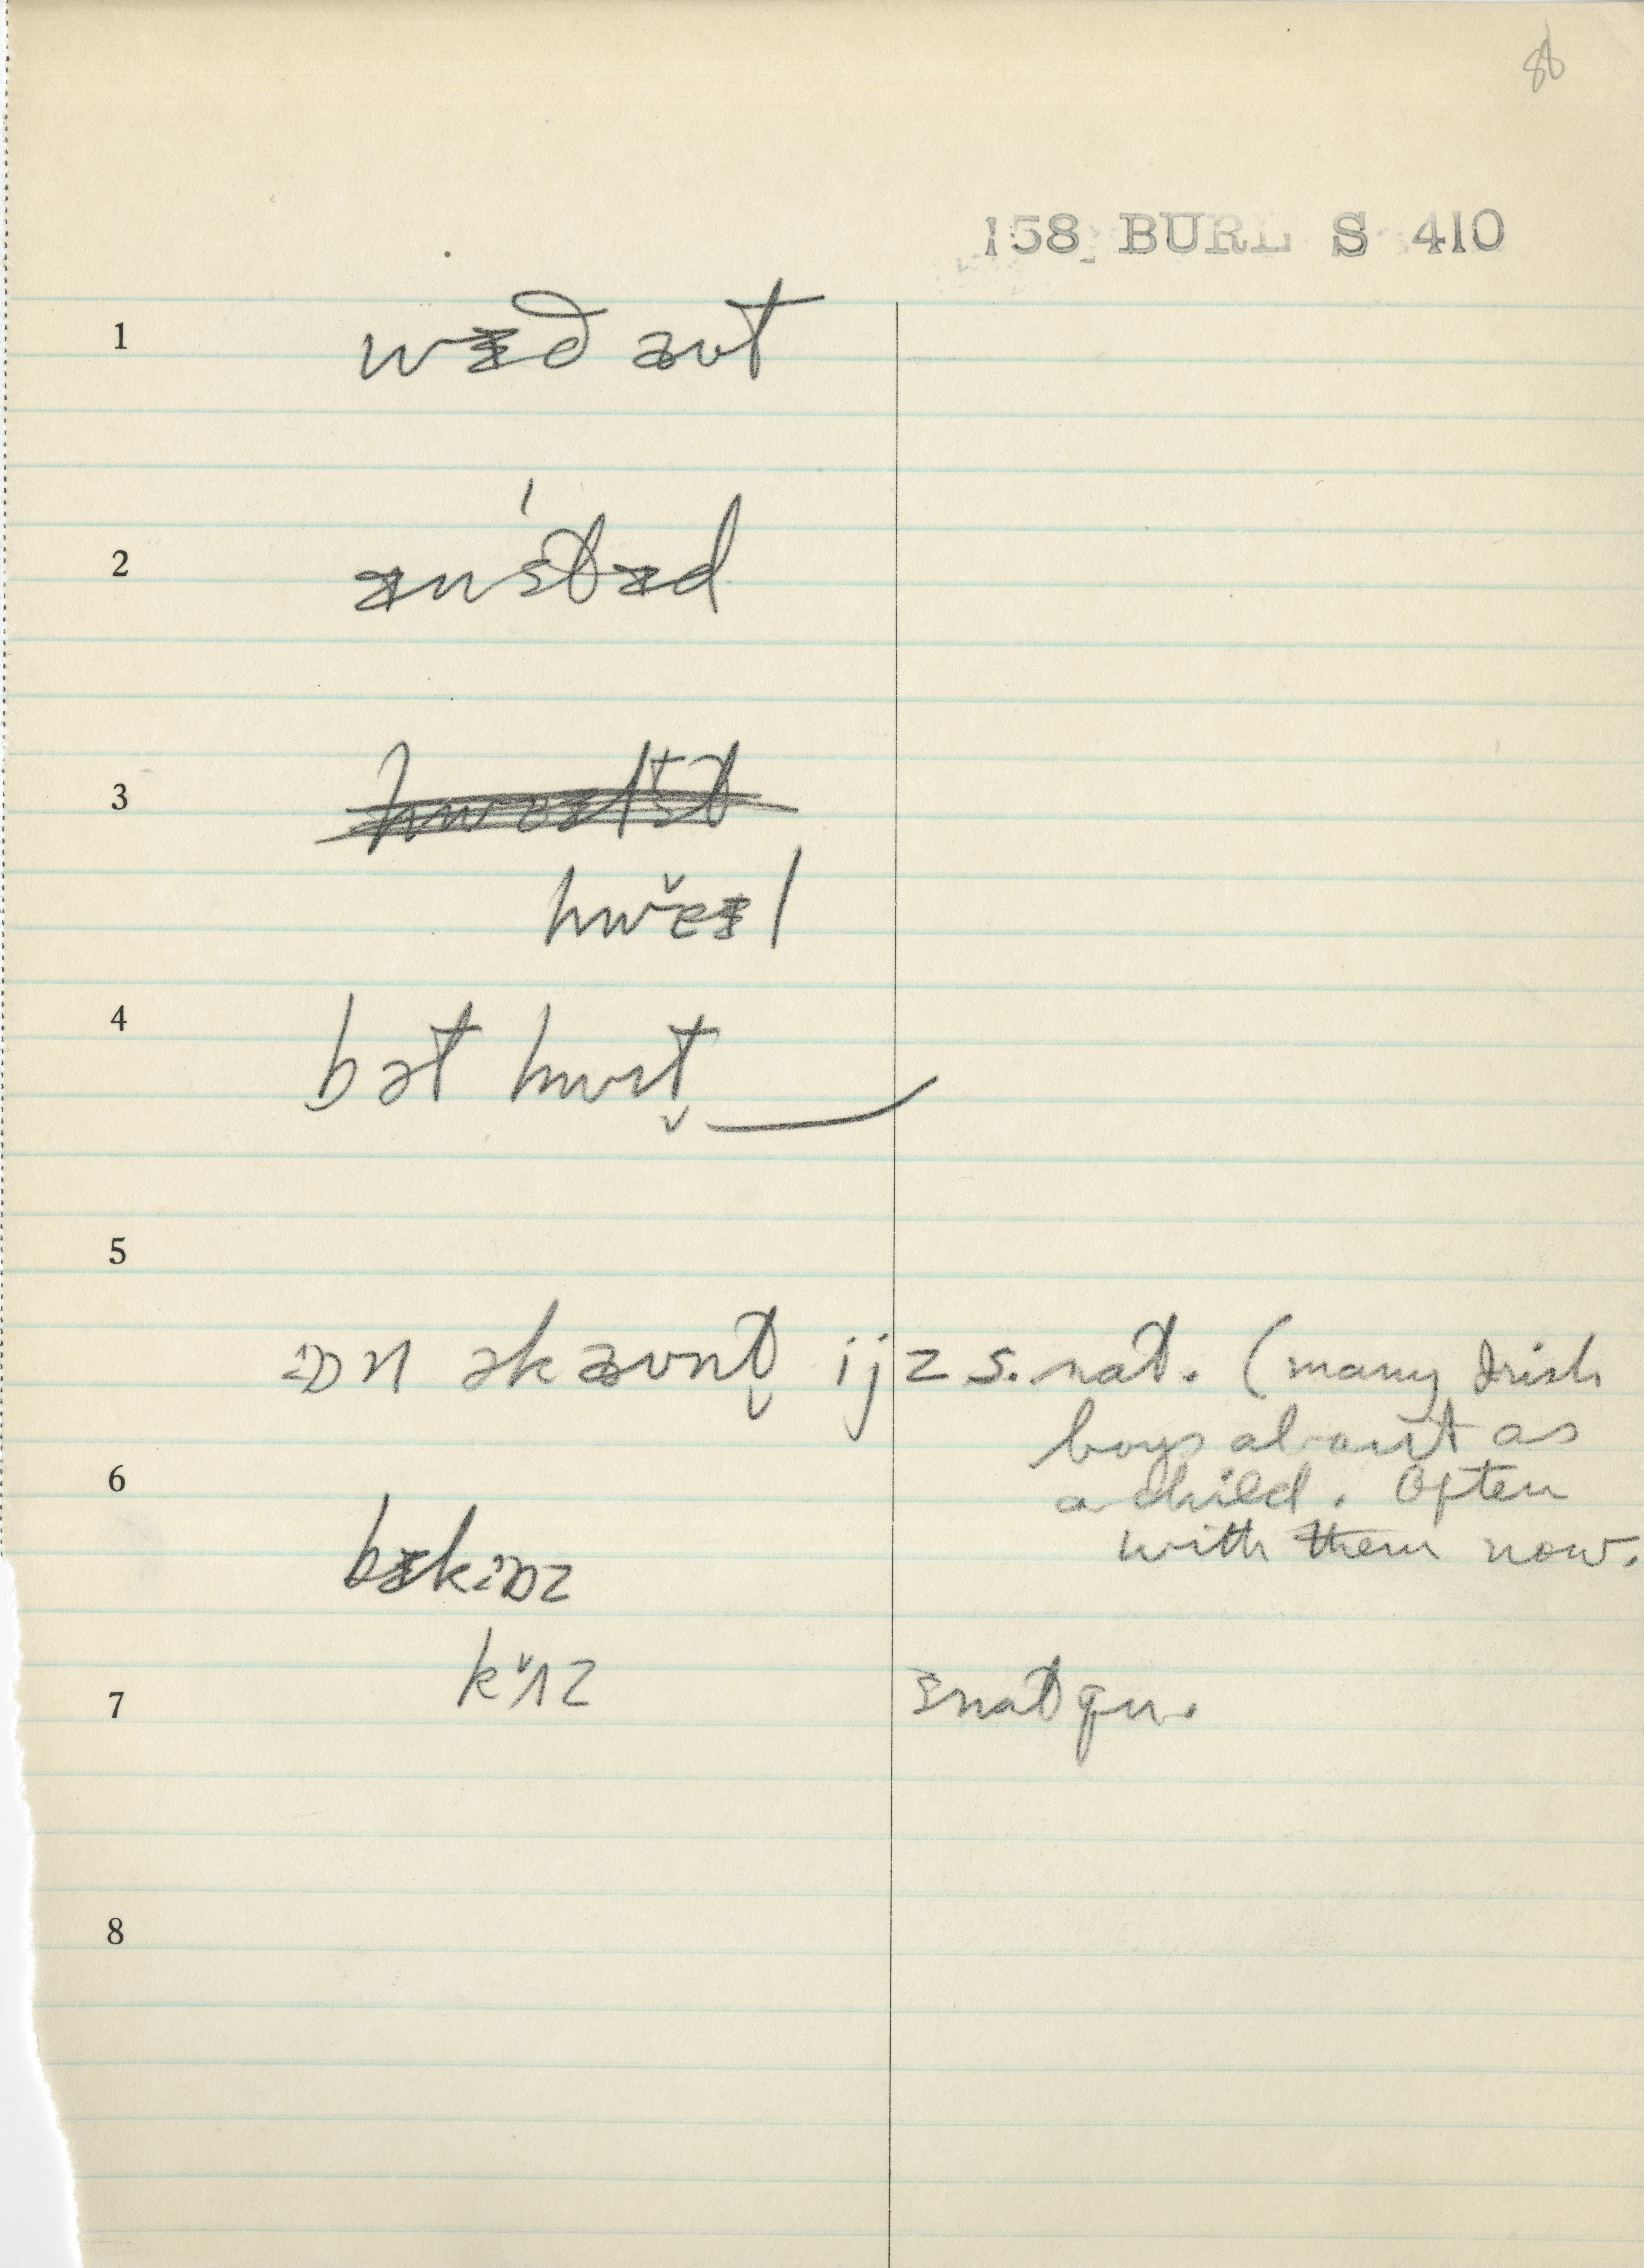 86
158 BURL S 410
1 wɨð aʊt
2 ɨn stɨd
3
hwɛ̌ɨl
4 bət hwɪt̬
5
ɔn əkaʊnt̬ ijz s. nat. (many Irish
boys about as
6 a child. Often
with them now.
bɨkɔz
7 k ̌ʌz snat qu.
8